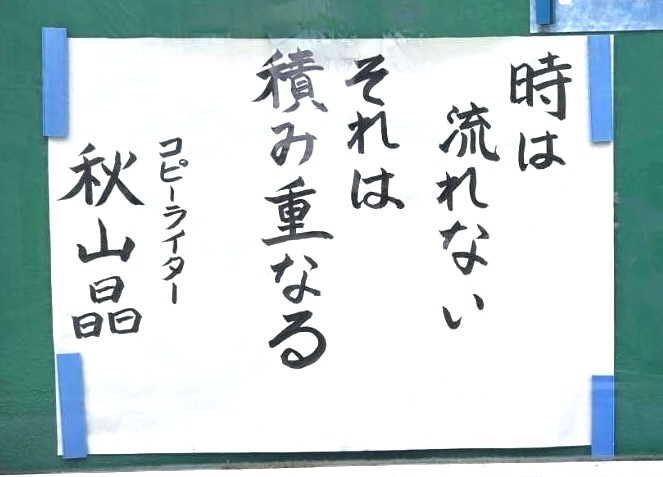 時は
流れない
それは
積み重なる
コピーライター
秋山晶